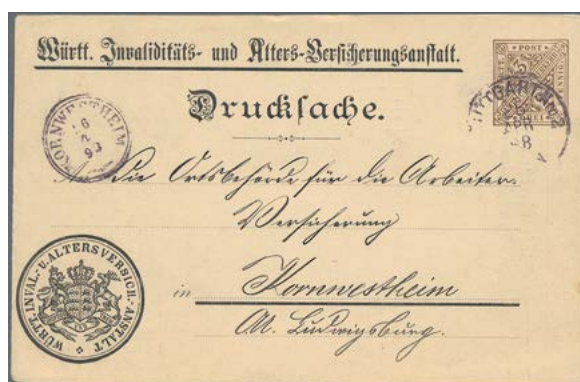 Württ. Invaliditäts- und Alters-Versicherungsanstalt.
POST
Drucksache.
STUTTGART No 2
5
APR
KORNWESTHEIM
An die Ortsbehörde für die Arbeiter-
Versicherung
in Kornwestheim
OA. Ludwigsburg.
WÜRTT. INVAL.- U. ALTERSVERSICH.- ANSTALT